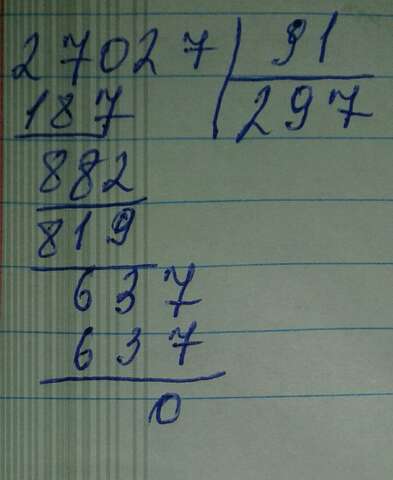 27027 91
187 297
882
819
637
637
0